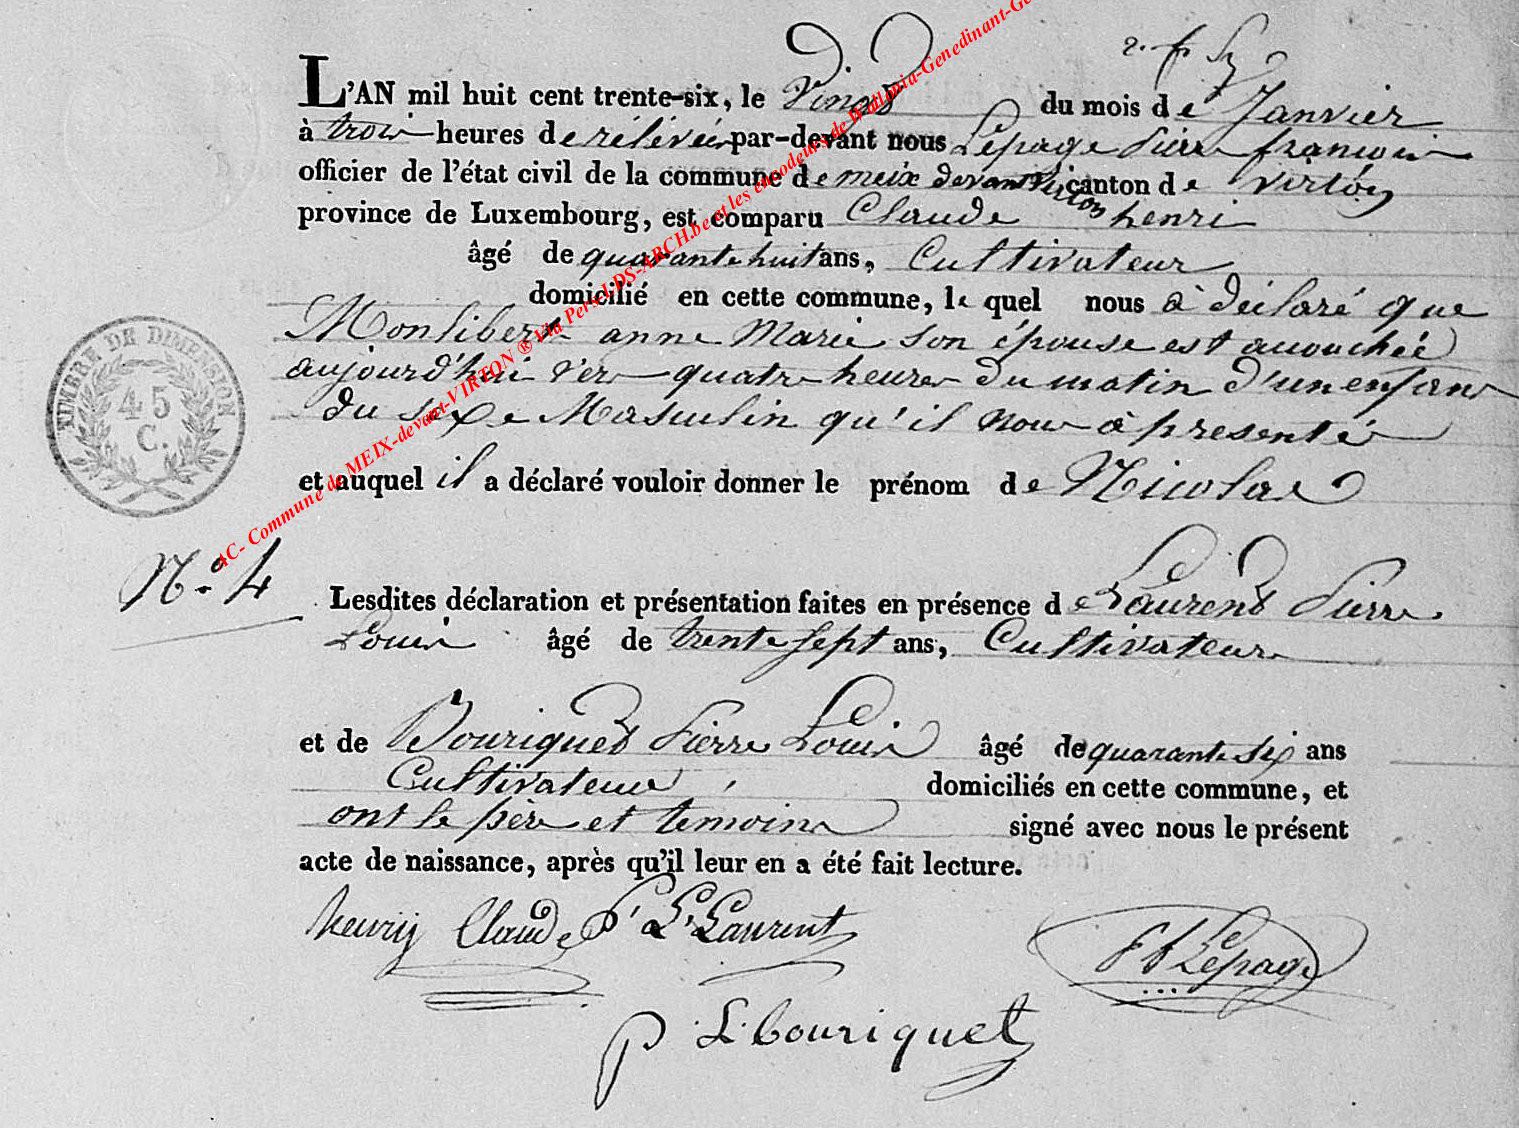 L'AN mil huit cent trente-six, le Vingt du mois de Janvier
à trois heures de rélévée par-devant nous Lépage Pierre françois
officier de l'état civil de la commune de meix devant Virton canton de virton
province de Luxembourg, est comparu Claude henri
âgé de quarante huit ans, Cultivateur
domicilié en cette commune, le quel nous à déclaré que
Monlibert anne Marie son épouse est accouchée
aujourd'hui vers quatre heures du matin d'un enfant
du sexe Masculin qu'il nous à présenté
et auquel il a déclaré vouloir donner le prénom de Nicolas
N.° 4
Lesdites déclaration et présentation faites en présence de Laurent Pierre
Louis âgé de trente sept ans, Cultivateur
et de Bouriquet Pierre Louis âgé de quarante six ans
Cultivateur domiciliés en cette commune, et
ont le père et temoins signé avec nous le présent
acte de naissance, après qu'il leur en a été fait lecture.
henry Claude P. L. Laurent
Lepage
p. L. bouriquet
TIMBRE DE DIMENSION
45
C.
AC- Commune de MEIX-devant-VIRTON ® Via Pers-LDS-ARCH.be et les encodeurs de Wallonia-Genedinant-Ge